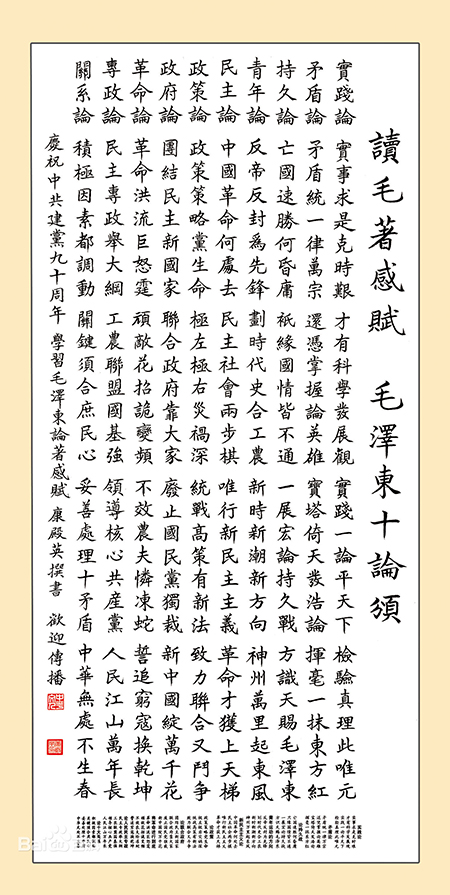 讀毛著感賦 毛澤東十論須
實踐論 實事求是克時艱 才有科學發展觀 實踐一論平天下 檢驗真理此唯元
矛盾論 矛盾統一律萬宗 還憑掌握論英雄 寶塔倚天發浩論 揮毫一抹東方紅
持久論 亡國速勝何昏庸 祇緣國情皆不通 一展宏論持久戰 方識天賜毛澤東
青年論 反帝反封爲先鋒 劃時代史合工農 新時新潮新方向 神州萬里起東風
民主論 中國革命何處去 民主社會兩步棋 唯行新民主主義 革命才獲上天梯
政策論 政策策略黨生命 極左極右災禍深 統戰高策有新法 致力聯合又鬥爭
政府論 團結民主新國家 聯合政府靠大家 廢止國民黨獨裁 新中國綻萬千花
革命論 革命洪流巨怒霆 頑敵花招詭變頻 不效農夫憐凍蛇 誓追窮寇換乾坤
專政論 民主專政舉大綱 工農聯盟國基強 領導核心共産黨 人民江山萬年長
關系論 積極因素都調動 關鍵須合庶民心 妥善處理十矛盾 中華無處不生春
慶祝中共建黨九十周年 學習毛澤東論著感賦 康殿英撰書 歡迎傳播
Bai百科